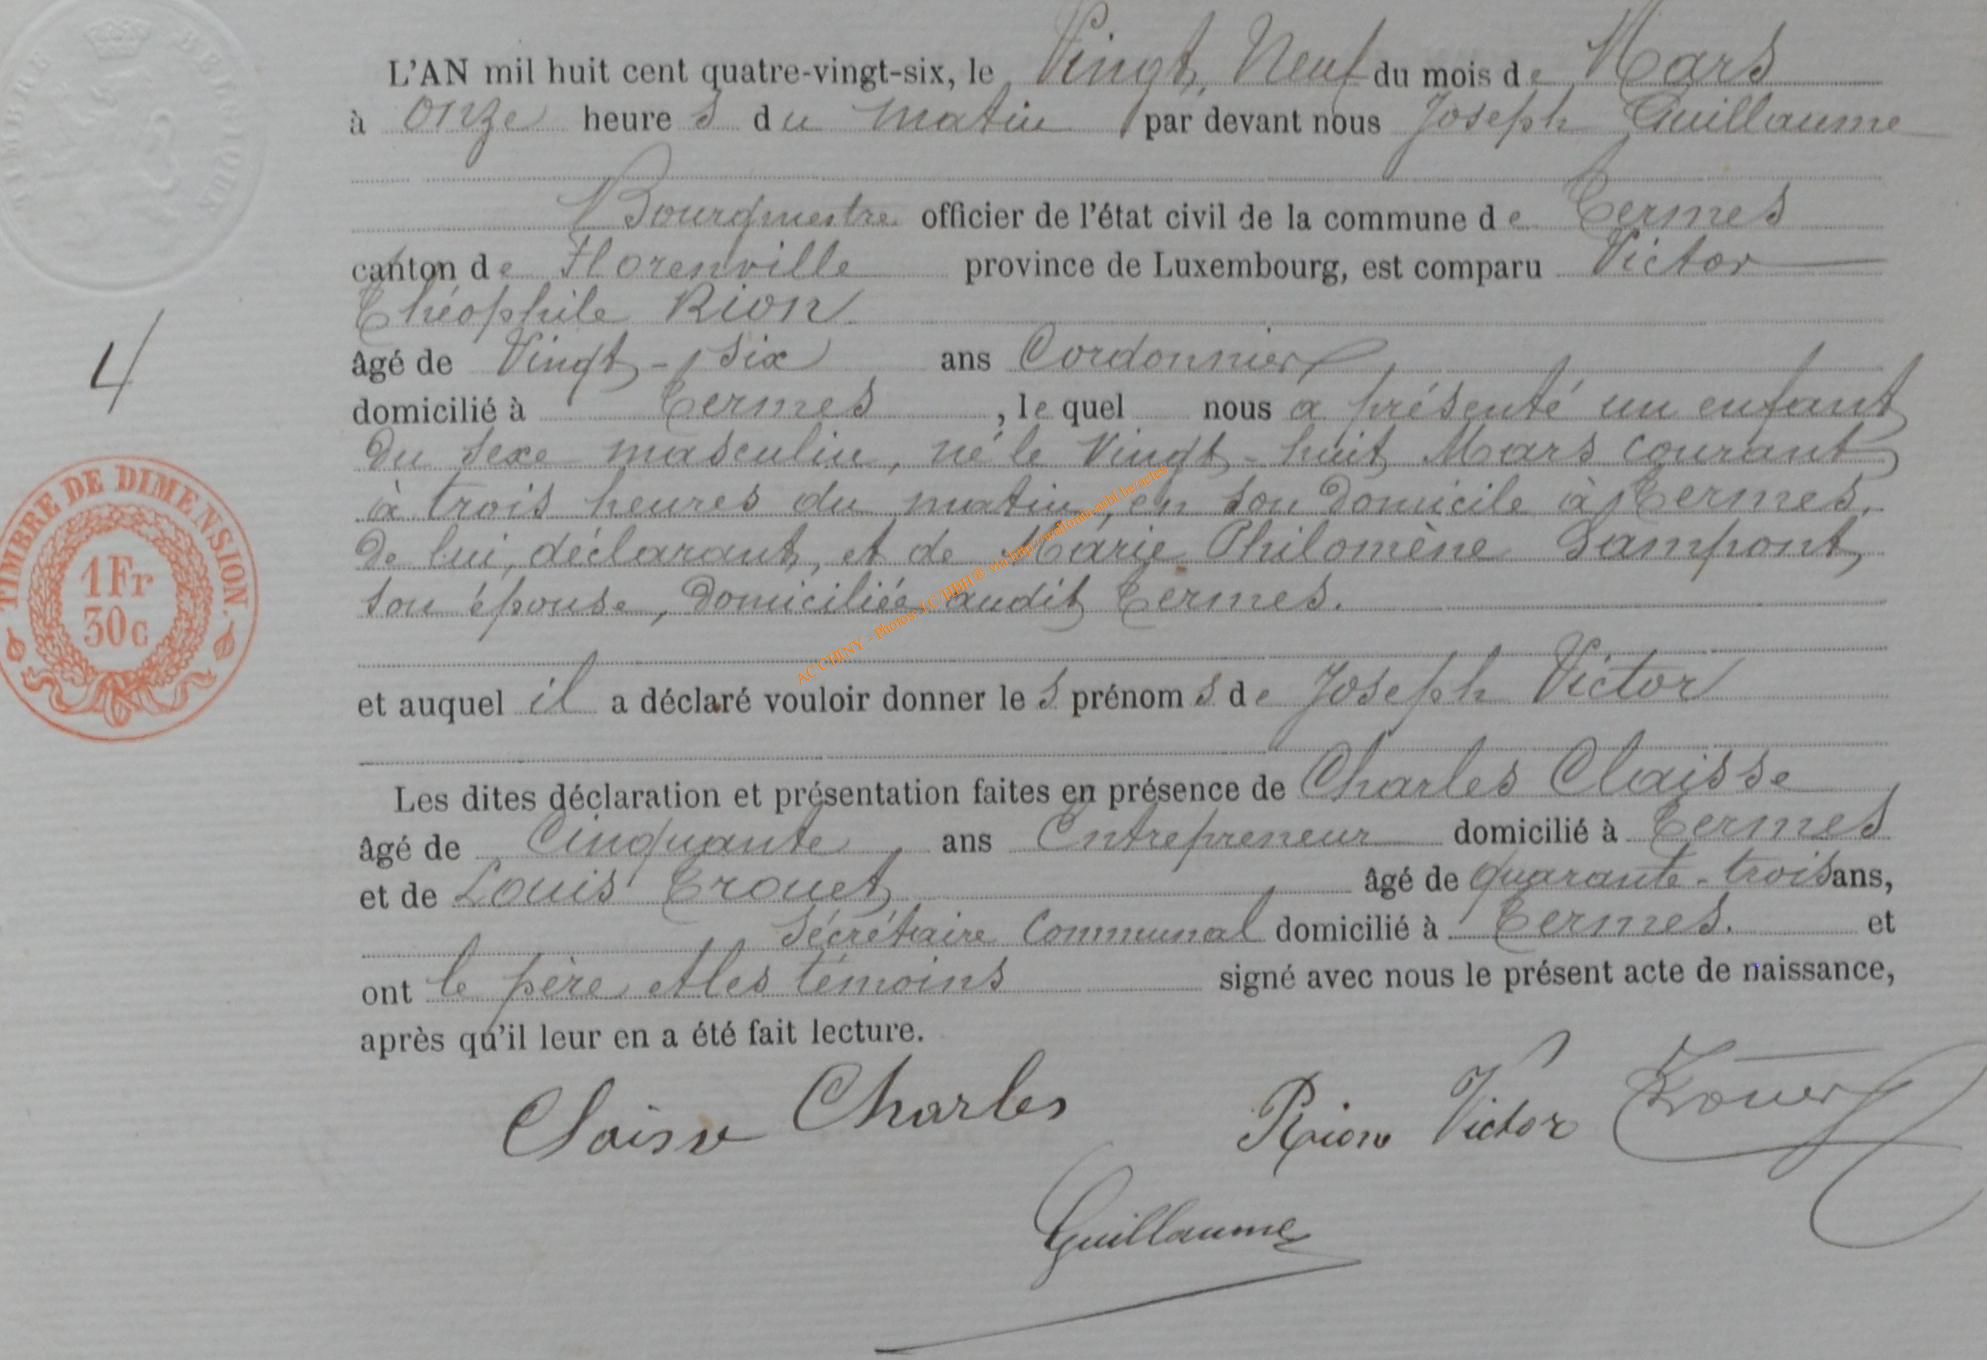 TIMBRE BELGIQUE
L'AN mil huit cent quatre-vingt-six, le Vingt Neuf du mois de Mars
à onze heures du matin par devant nous Joseph Guillaume
Bourgmestre officier de l'état civil de la commune de Termes
canton de Florenville province de Luxembourg, est comparu Victor
Théophile Rion
4
âgé de Vingt-six ans Cordonnier
domicilié à Termes, lequel nous a présenté un enfant
du sexe masculin, né le Vingt-huit Mars courant
à trois heures du matin, en son domicile à Termes,
de lui, déclarant, et de Marie Philomène Sampont,
son épouse, domiciliée audit Termes.
TIMBRE DE DIMENSION.
1 Fr
30c
AC CHINY - Photos
et auquel il a déclaré vouloir donner les prénoms de Joseph Victor
Les dites déclaration et présentation faites en présence de Charles Claisse
âgé de Cinquante ans Entrepreneur domicilié à Termes
et de Louis Trouet âgé de quarante-trois ans,
Sécrétaire Communal domicilié à Termes. et
ont le père et les témoins signé avec nous le présent acte de naissance,
après qu'il leur en a été fait lecture.
Claisse Charles Rion Victor Trouet
Guillaume